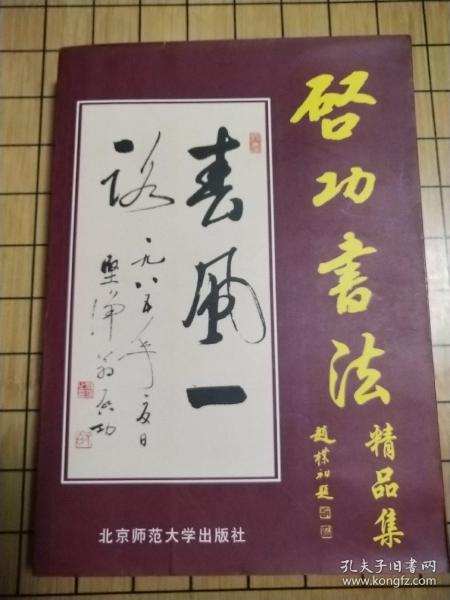 启功书法
精品集
趙樸初題
春風一
路
一九八五年夏日
堅净翁啟功
北京师范大学出版社
孔夫子旧书网
www.kongfz.com